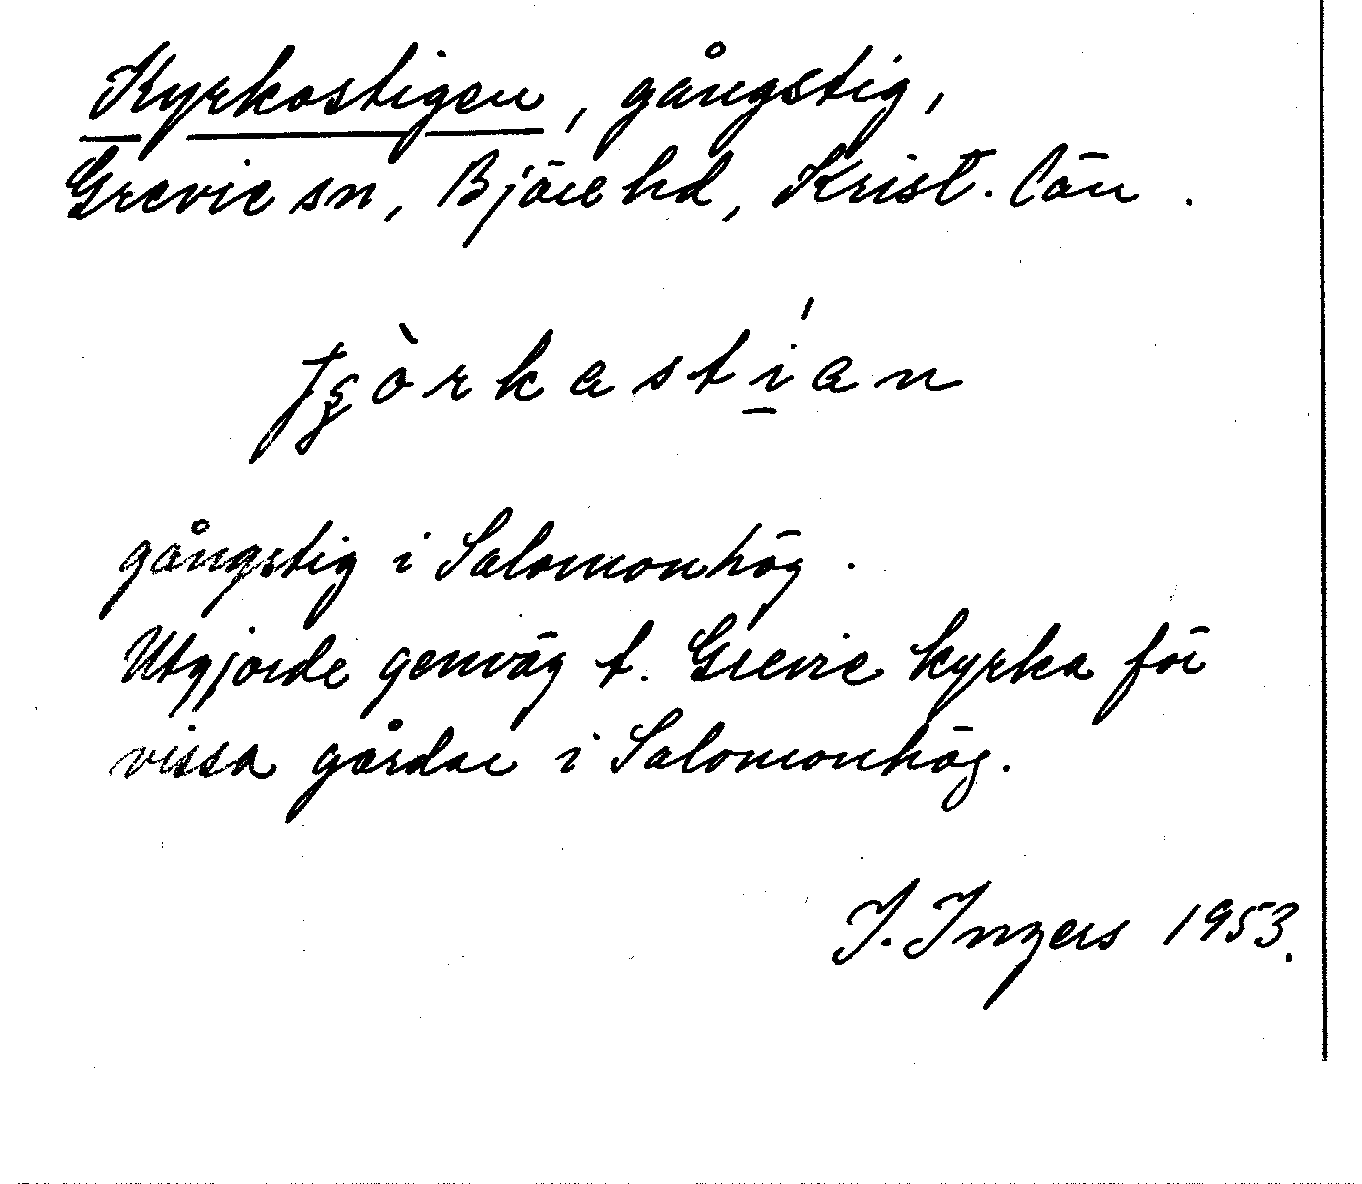 Kyrkostigen, gångstig,
Grevie sn, Bjäre hd, Krist. län.
gångstig i Salomonhög.
Utgjorde genväg t. Grevie kyrka för
vissa gårdar i Salomonhög.
I. Ingers 1953.